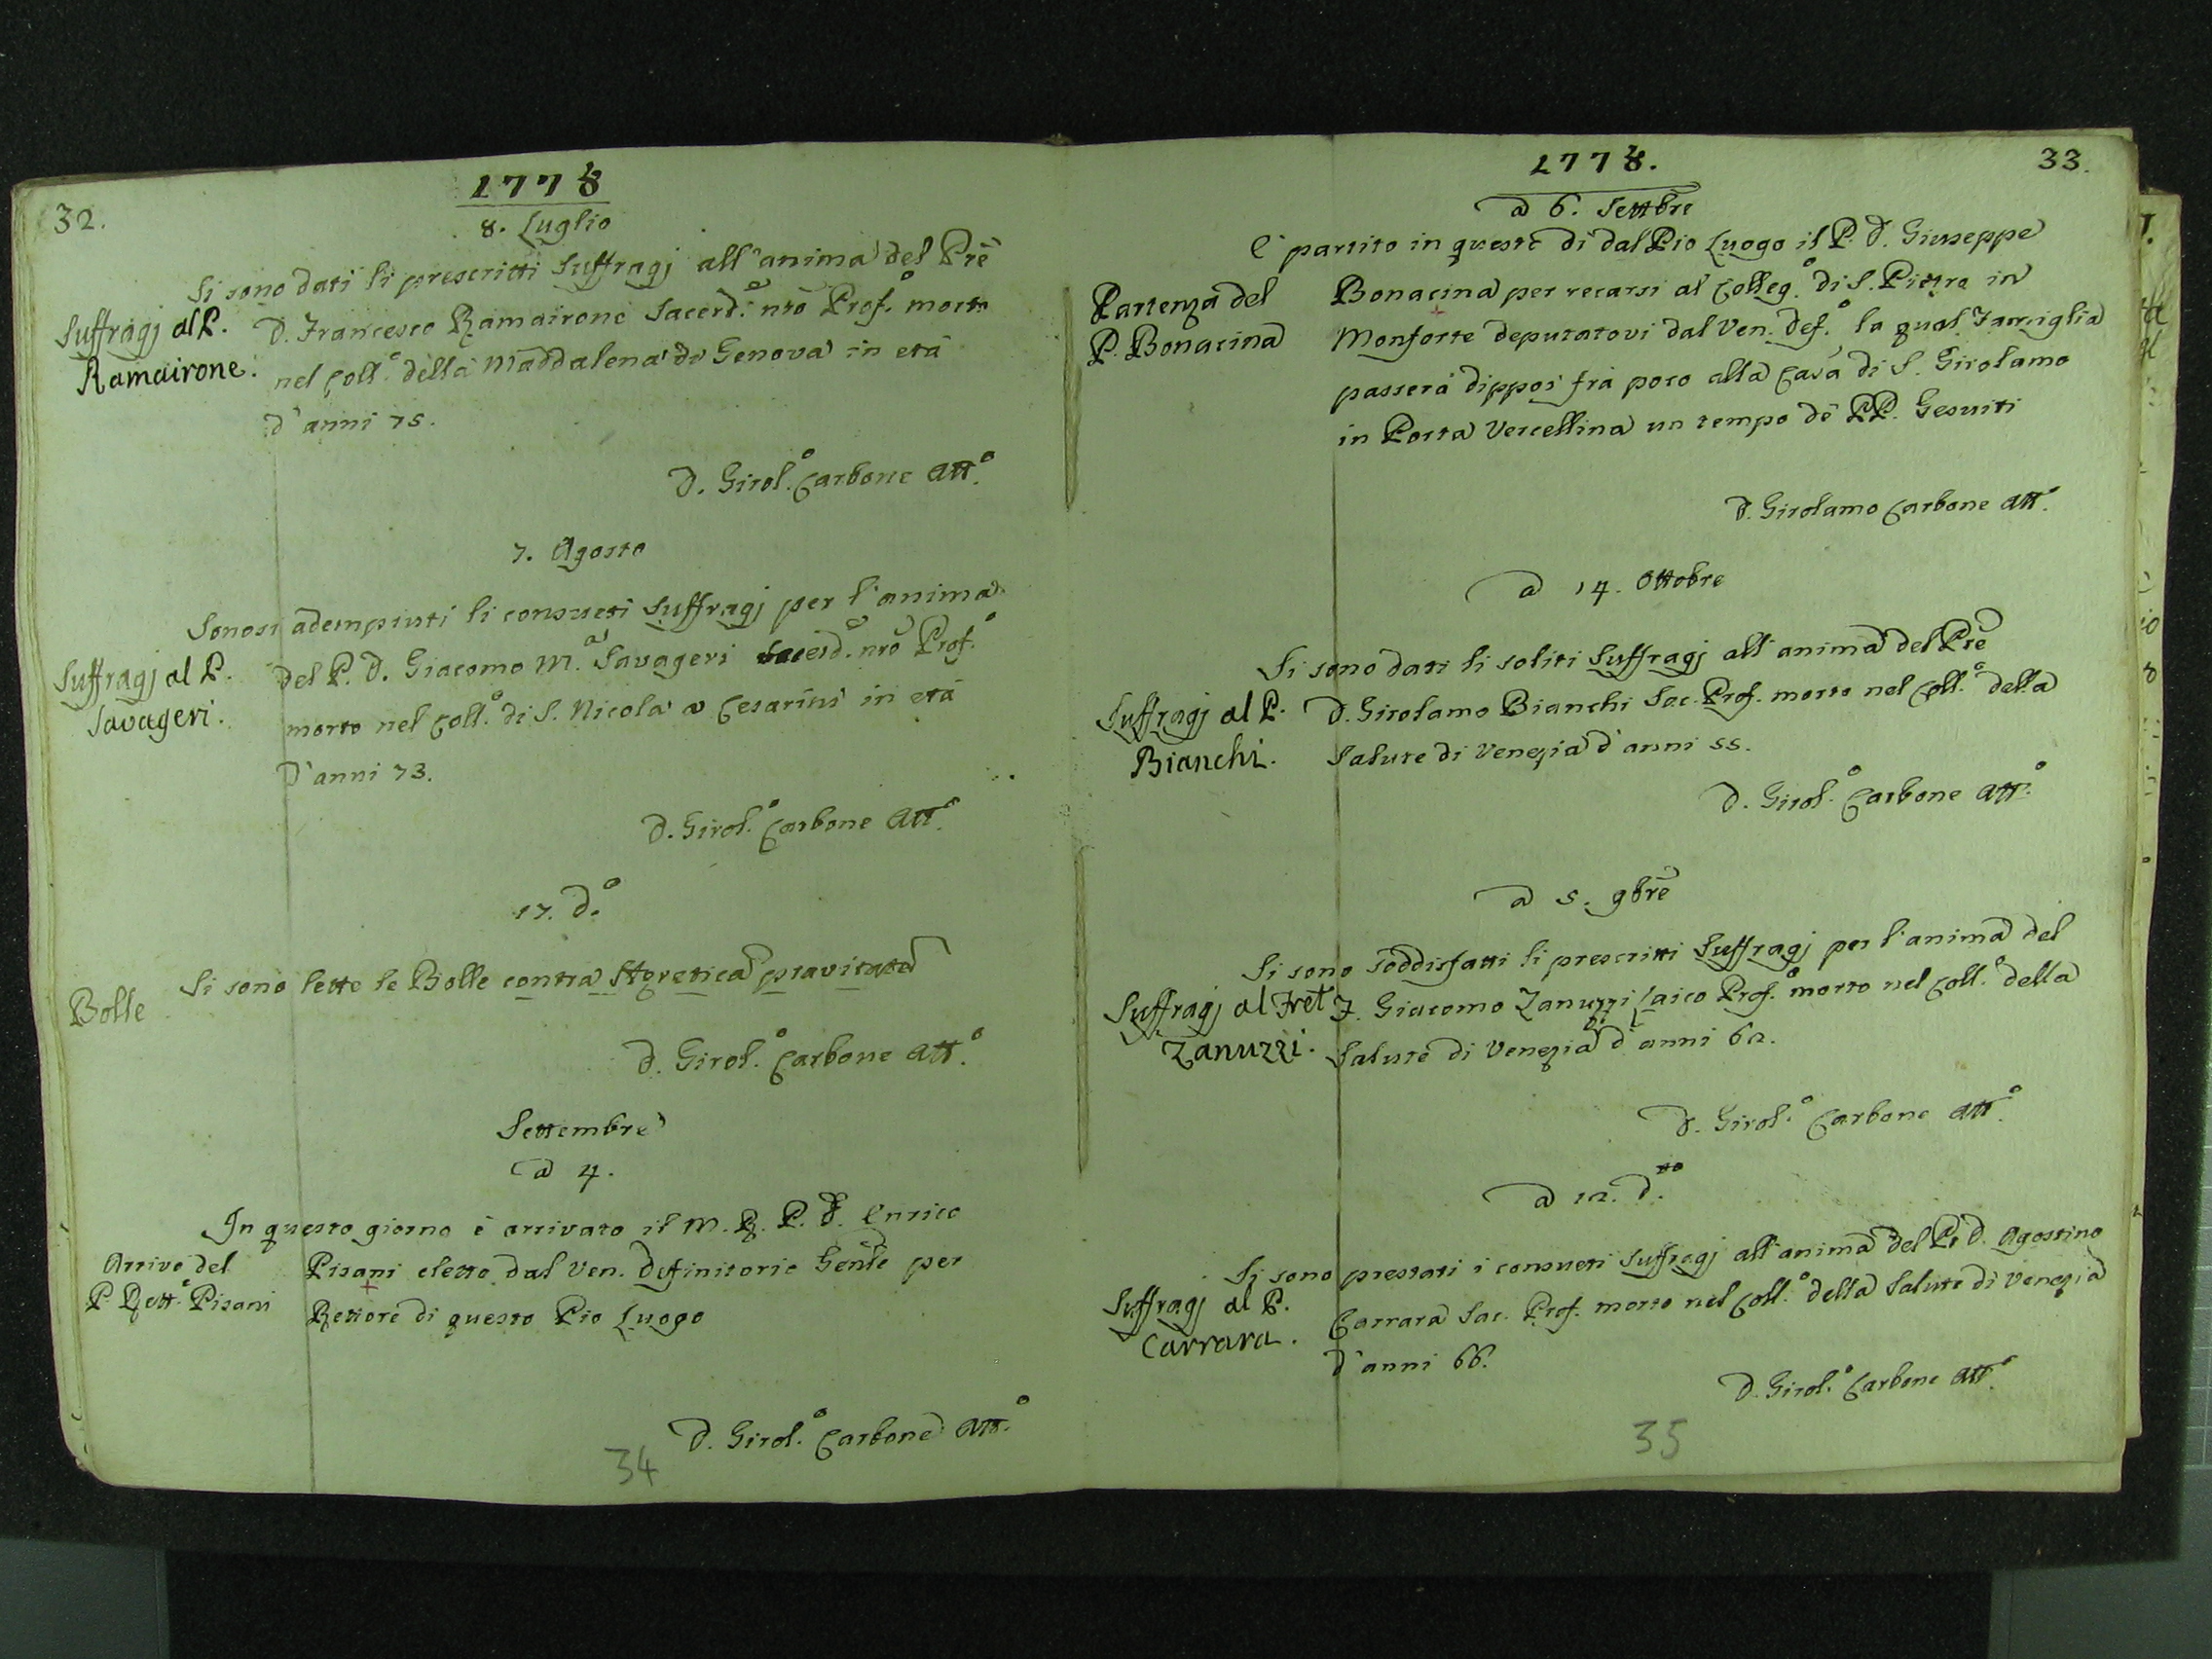 32.
1778
8. Luglio
Si sono dati li prescritti Suffragj all'anima del Prē
Suffragj al P.
Ramairone.
D. Francesco Ramairone Sacerd.e nrō Prof.o morto
nel Coll.o della Maddalena di Genova in età
d'anni 75.
D. Girol.o Carbone Att.o
7. Agosto
Sonosi adempiuti li consueti Suffragj per l'anima
Suffragj al P.
Savageri.
del P. D. Giacomo M.a Savageri Sacerd.e nrō Prof.o
morto nel Coll.o di S. Nicola a Cesarini in età
D'anni 73.
D. Girol.o Carbone Att.o
17. d.o
Bolle
Si sono lette le Bolle contra Hęretica pravitate
D. Girol.o Carbone Att.o
Settembre
a 4.
In questo giorno è arrivato il M. R. P. D. Enrico
Arrivo del
P. Rett.e Pisani
Pisani eletto dal Ven. Definitorio Genl̄e per
Rettore di questo Pio Luogo
D. Girol.o Carbone Att.o
34
1778.
33.
a 6. Settbre
È partito in questo dì dal Pio Luogo il P. D. Giuseppe
Partenza del
P. Bonacina
Bonacina per recarsi al Colleg.o di S. Pietro in
Monforte deputatovi dal Ven. Def.o la qual Famiglia
passerà dippoi frà poco alla Casa di S. Girolamo
in Porta Vercellina un tempo dè PP. Gesuiti
D. Girolamo Carbone Att.o
a 14. Ottobre
Si sono dati li soliti Suffragj all'anima del Prē
Suffragj al P.
Bianchi.
D. Girolamo Bianchi Sac. Prof. morto nel Coll.o della
Salute di Venezia d'anni 55.
D. Girol.o Carbone Att.o
a 5. 9brē
Si sono soddisfatti li prescritti Suffragj per l'anima del
Suffragj al Fret.
Zanuzzi.
F. Giacomo Zanuzzi Laico Prof.o morto nel Coll.o della
Salute di Venezia d'anni 62.
D. Girol.o Carbone Att.o
a 12. d.tto
Si sono prestati i consueti Suffragj all'anima del P. D. Agostino
Suffragj al P.
Carrara.
Carrara Sac. Prof. morto nel Coll.o della Salute di Venezia
d'anni 66.
D. Girol.o Carbone Att.o
35